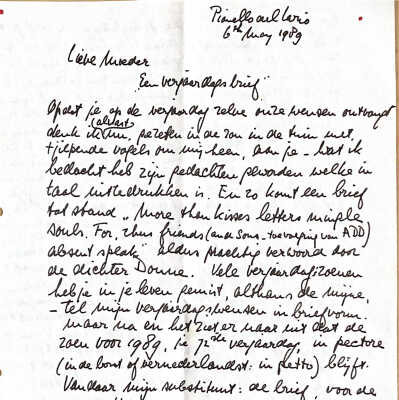 Pianello del Lario
6th May 1989
Lieve Moeder
"Een verjaardagsbrief"
Opdat je op de verjaardag zelve onze wensen ontvangt
denk ik (alvast) nu, gezeten in de zon in de tuin met
tjilpende vogels om mij heen, aan je – wat ik
bedacht heb zijn gedachten geworden welke in
taal uit te drukken is. En zo komt een brief
tot stand "More than kisses letters mingle
souls. For, thus friends (and sons - toevoeging van ADD)
absent speak" aldus prachtig verwoord door
de dichter Donne. Vele verjaardagszoenen
heb je in je leven gemist, althans de mijne,
– tel mijn verjaardagswensen in briefvorm.
maar na en het ziet er naar uit dat de
zoen voor 1989, je 72ste verjaardag, in pectore
(in de borst of vernederlandst: in petto) blijft.
Vandaar mijn substituut: de brief, voor de